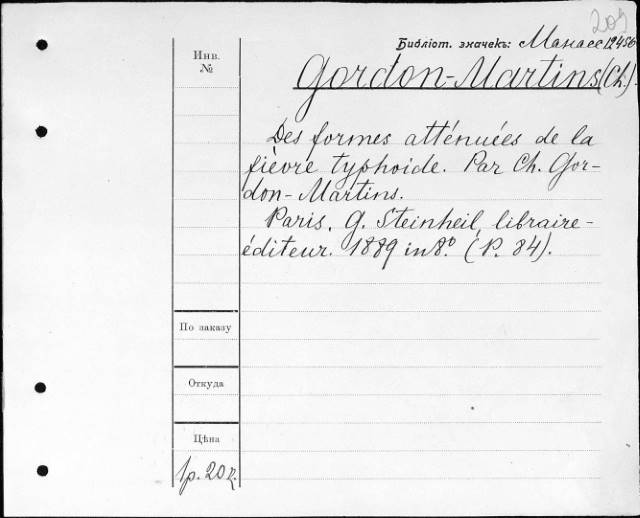 209
Библіот. значекъ: Манасе 12456
Инв.
№
Gordon-Martins (Ch.).
Des formes atténuées de la
fièvre typhoide. Par Ch. Gor-
don-Martins.
Paris, G. Steinheil, libraire-
éditeur. 1889 in 8º. (P. 84).
По заказу
Откуда
Цѣна
1р. 20к.